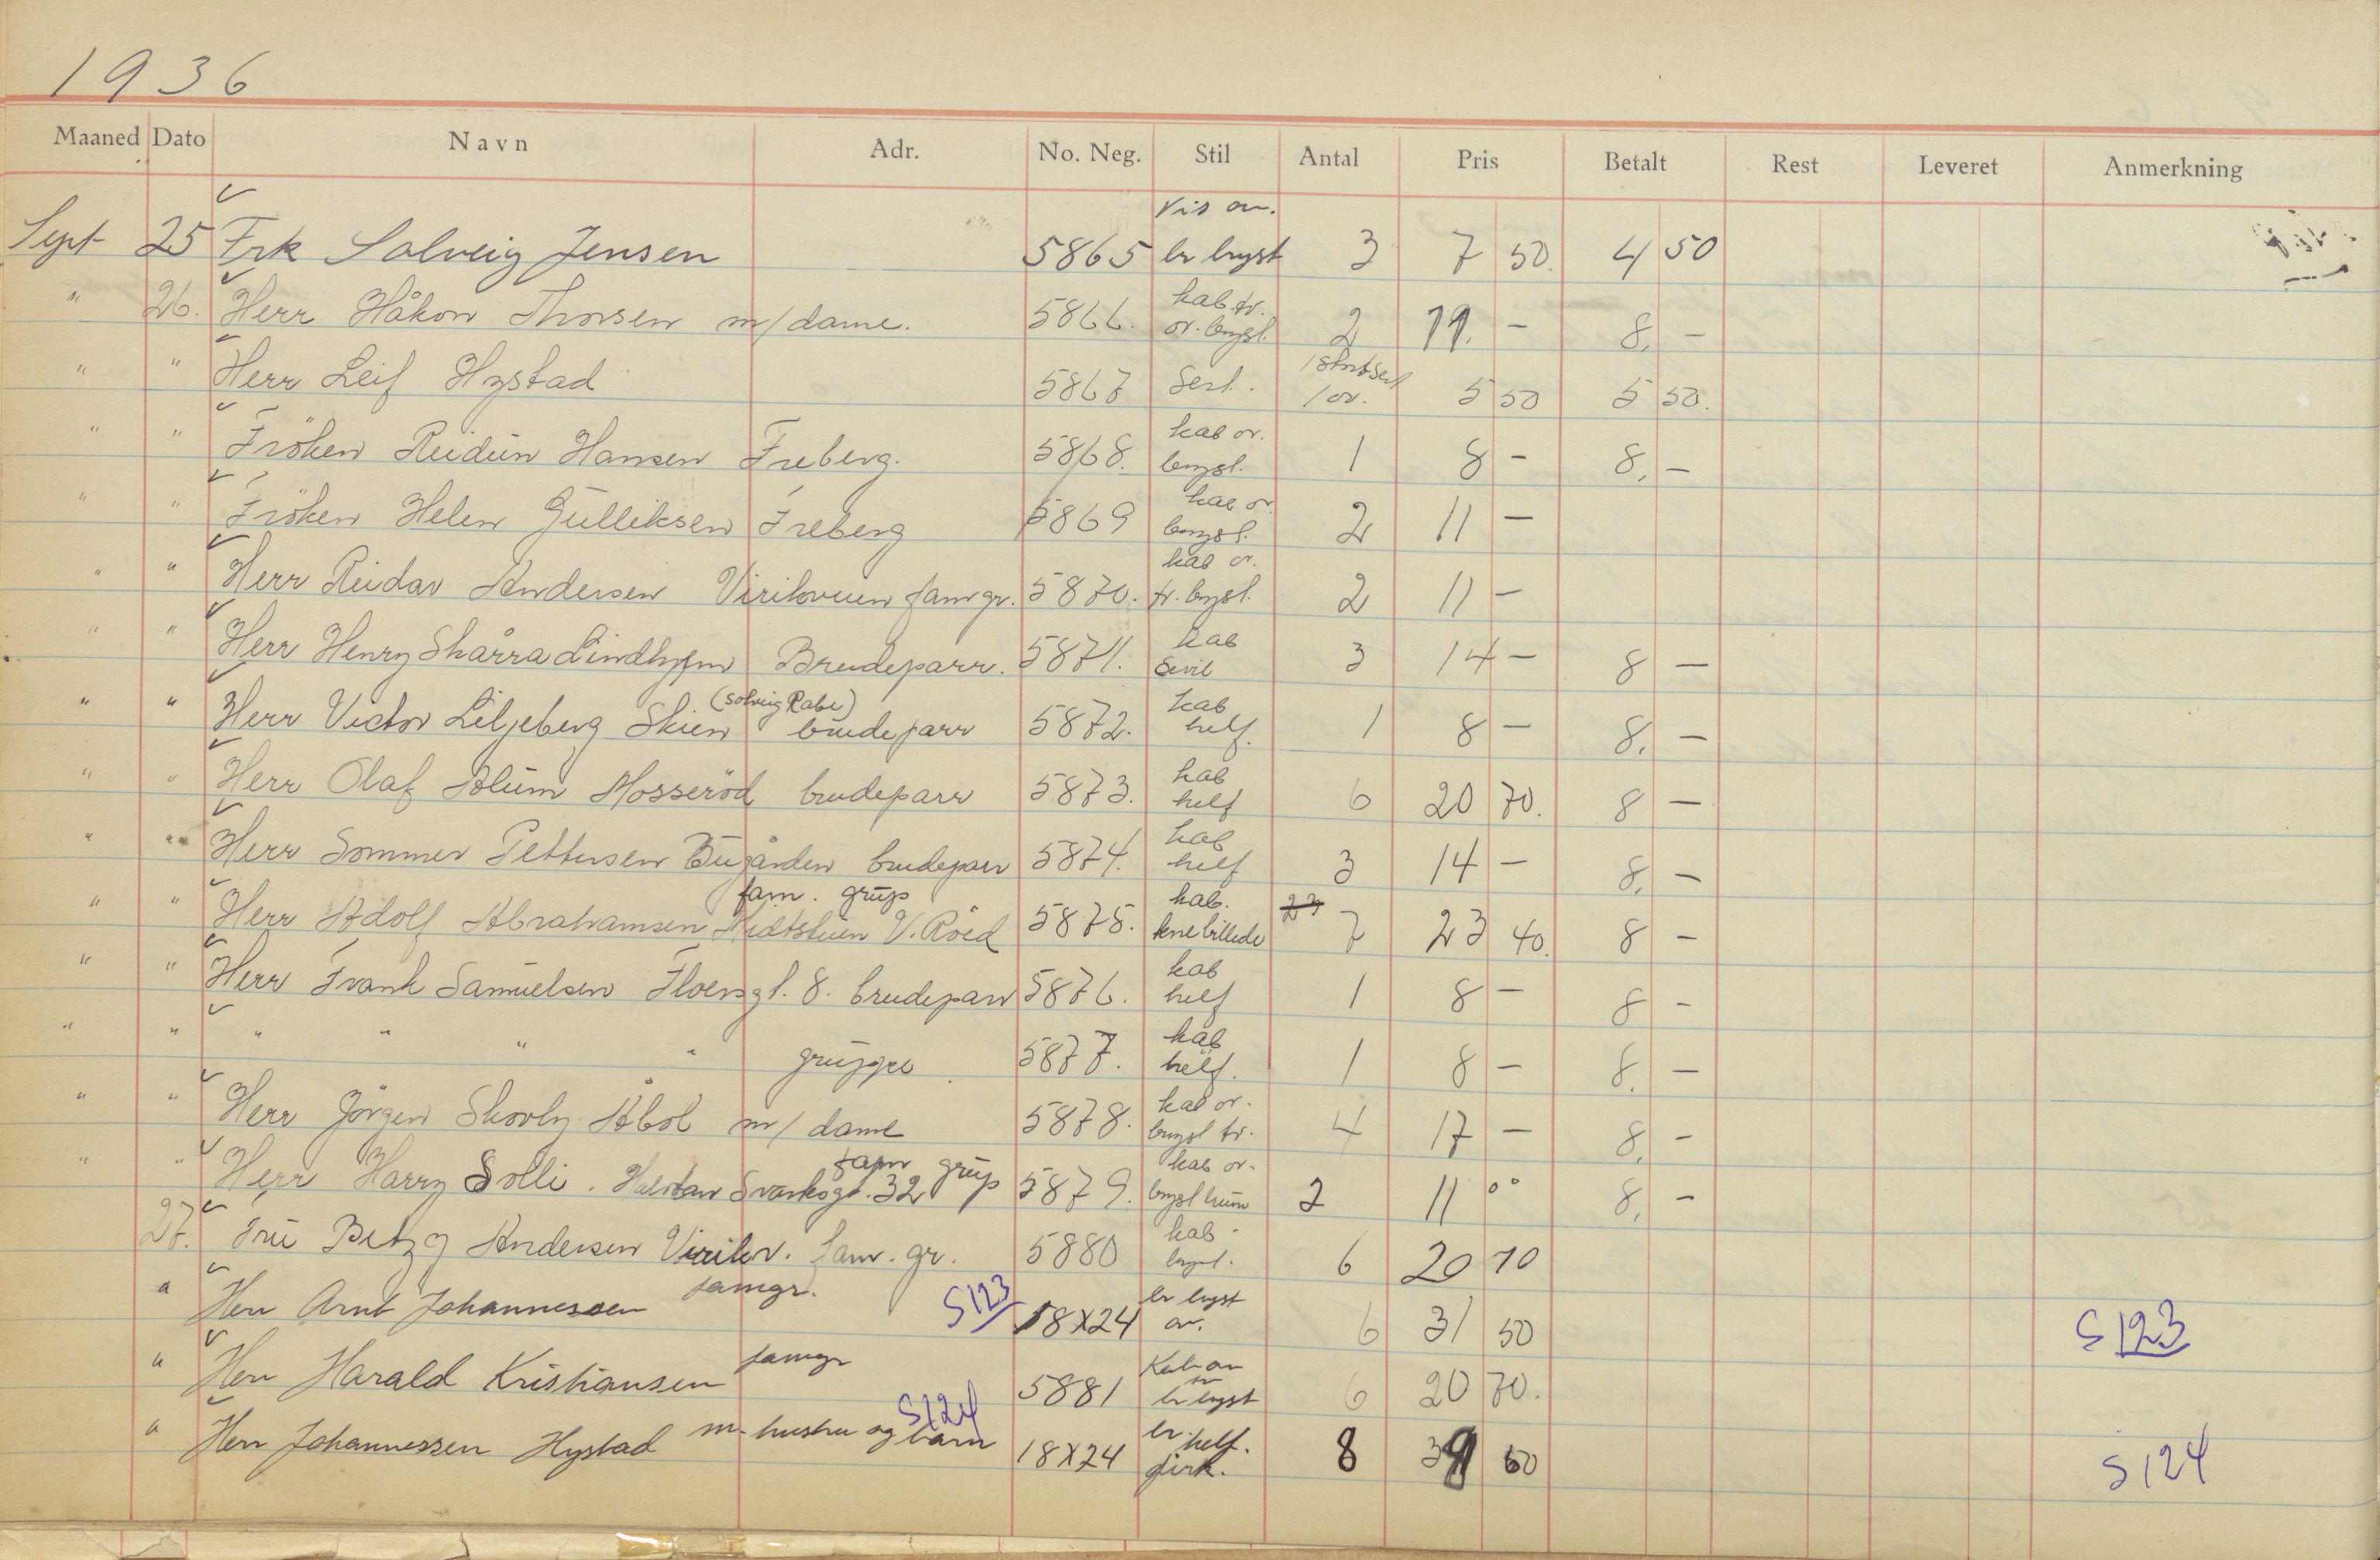 1936
Maaned Dato Navn Adr. No. Neg. Stil Antal Pris Betalt Rest Leveret Anmerkning
Vis ov.
Sept 25 Frk Solveig Jensen 5865 br bryst 3 7 50. 4 50
kab br.
" 26. Herr Håkon Thorsen m/dame. 5866. ov. bryst. 2 11. - 8. -
" " Herr Leif Hystad 5867 Sert. 1 ov. 5 50 5 50.
kab ov.
" " Fröken Reidun Hansen Freberg. 5868. bryst. 1 8 - 8. -
kab ov.
" " Fröken Helen Gulliksen Freberg 5869 bryst. 2 11 -
kab ov.
" " Herr Reidar Andersen Virikveien fam gr. 5870. br. bryst. 2 11 -
kab
" " Herr Henry Skårra Lindholm Brudeparr. 5871. Sevil 3 14 - 8 -
(Solveig Rabe) kab
" " Herr Victor Liljeberg Skien brudeparr 5872. helf. 1 8 - 8. -
kab
" " Herr Olaf Blum Mosseröd brudeparr 5873. helf 6 20 70. 8 -
kab
" " Herr Sommer Pettersen Bugården brudeparr 5874. helf 3 14 - 8. -
fam. grup kab. 23
" " Herr Adolf Abrahamsen V. Röed 5875. knebillede 7 23 40. 8 -
kab
" " Herr Frank Samuelsen gt. 8. brudeparr 5876. helf 1 8 - 8 -
kab
" " " " " " gruppe 5877. helf. 1 8 - 8. -
kab ov.
" " Herr Jörgen Skovly m/ dame 5878. bryst br. 4 17 - 8. -
fam grup kab ov.
" " Herr Harry Solli. Halvdan Svartsgt. 32 5879. bryst brun 2 11 00 8. -
kab
27. Fru Betzy Andersen Virikv. fam. gr. 5880 bryst. 6 20 70
famgr. S123 br bryst
" Herr Arnt Johannessen 18X24 ov. 6 31 50 S123
famgr Kab ov
" Herr Harald Kristiansen 5881 br bryst 6 20 70.
S124 br helf.
" Herr Johannessen Hystad m. hustru og barn 18X24 firk. 8 39 60 S124